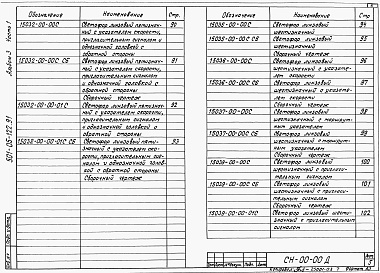 Альбом 3 Часть 1
501-05-122.91
Обозначение Наименование Стр.
15032-00-00С Светофор линзовый пятизнач- 90
ный с указателем скорости,
пригласительным сигналом и
однозначной головкой с
обратной стороны
15032-00-00С СБ Светофор линзовый пятизнач- 91
ный с указателем скорости,
пригласительным сигналом
и однозначной головкой с
обратной стороны
Сборочный чертеж
15032-00-00-01С Светофор линзовый пятизначный 92
с указателем скорости,
пригласительным сигналом
и однозначной головкой с
обратной стороны
15032-00-00-01С СБ Светофор линзовый пяти- 93
значный с указателем ско-
рости, пригласительным сиг-
налом и однозначной голов-
кой с обратной стороны
Сборочный чертеж
Обозначение Наименование Стр.
15035-00-00С Светофор линзовый 94
шестизначный
15035-00-00С СБ Светофор линзовый 95
шестизначный
Сборочный чертеж
15036-00-00С Светофор линзовый 96
шестизначный с указате-
лем скорости
15036-00-00С СБ Светофор линзовый 97
шестизначный с указате-
лем скорости
Сборочный чертеж
15037-00-00С Светофор линзовый 98
шестизначный с маршрут-
ным указателем
15037-00-00С СБ Светофор линзовый 99
шестизначный с маршрут-
ным указателем
Сборочный чертеж
15039-00-00С Светофор линзовый 100
шестизначный с пригласи-
тельным сигналом
15039-00-00С СБ Светофор линзовый 101
шестизначный с пригласи-
тельным сигналом
Сборочный чертеж
15039-00-00-01С Светофор линзовый шести- 102
значный с пригласительным
сигналом
СН-00-00 Д
Лист
5
Формат А3